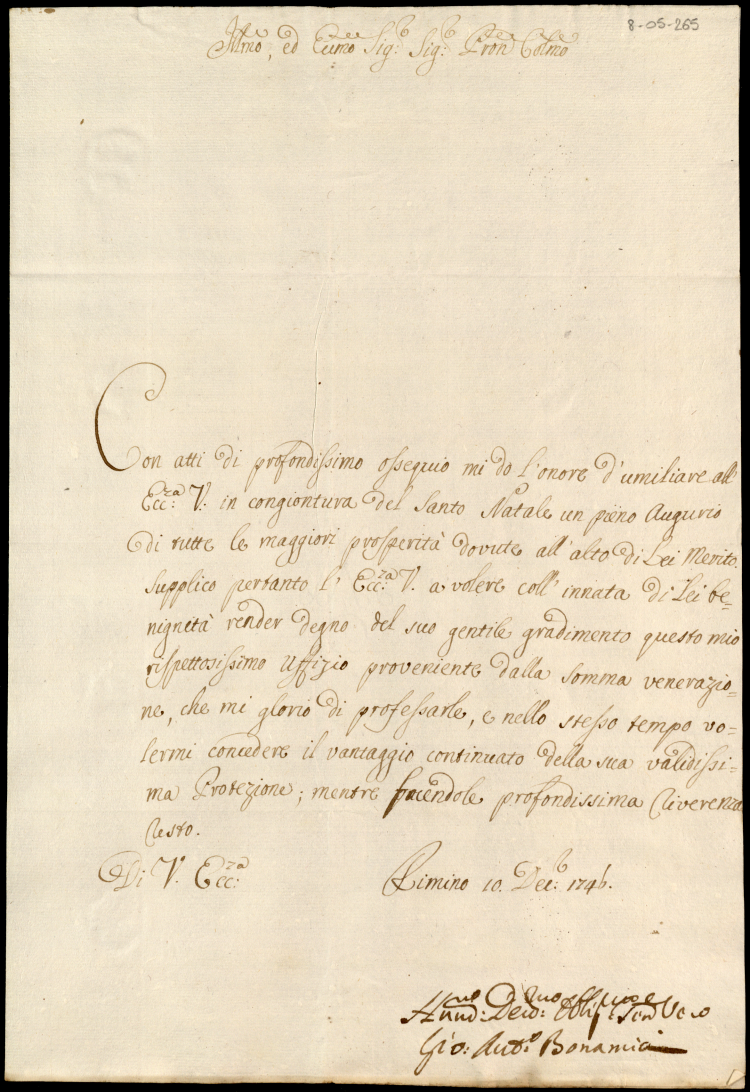 8-05-265
Illmo, ed Eccmo Sig.r Sig.r Pron Colmo
Con atti di profondissimo ossequio mi do l'onore d'umiliare all'
Ecc:za V. in congiontura del Santo Natale un pieno Augurio
di tutte le maggiori prosperità dovute all'alto di Lei Merito.
supplico pertanto l' Ecc:za V. a volere coll'innata di Lei be=
nignità render degno del suo gentile gradimento questo mio
rispettosissimo Uffizio proveniente dalla somma venerazio=
ne, che mi glorio di professarle, e nello stesso tempo vo=
lermi concedere il vantaggio continuato della sua validissi=
ma Protezione; mentre facendole profondissima Riverenza
resto.
Di V. Ecc:za
Rimino 10. Dec:b 1746.
Hum:me Dev:mo Obblig:
Gio: Ant:o Bonamici